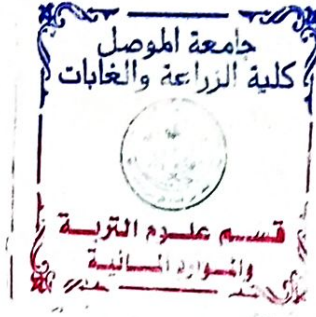 جامعة الموصل
كلية الزراعة والغابات
قسم علوم التربة
والموارد المائية